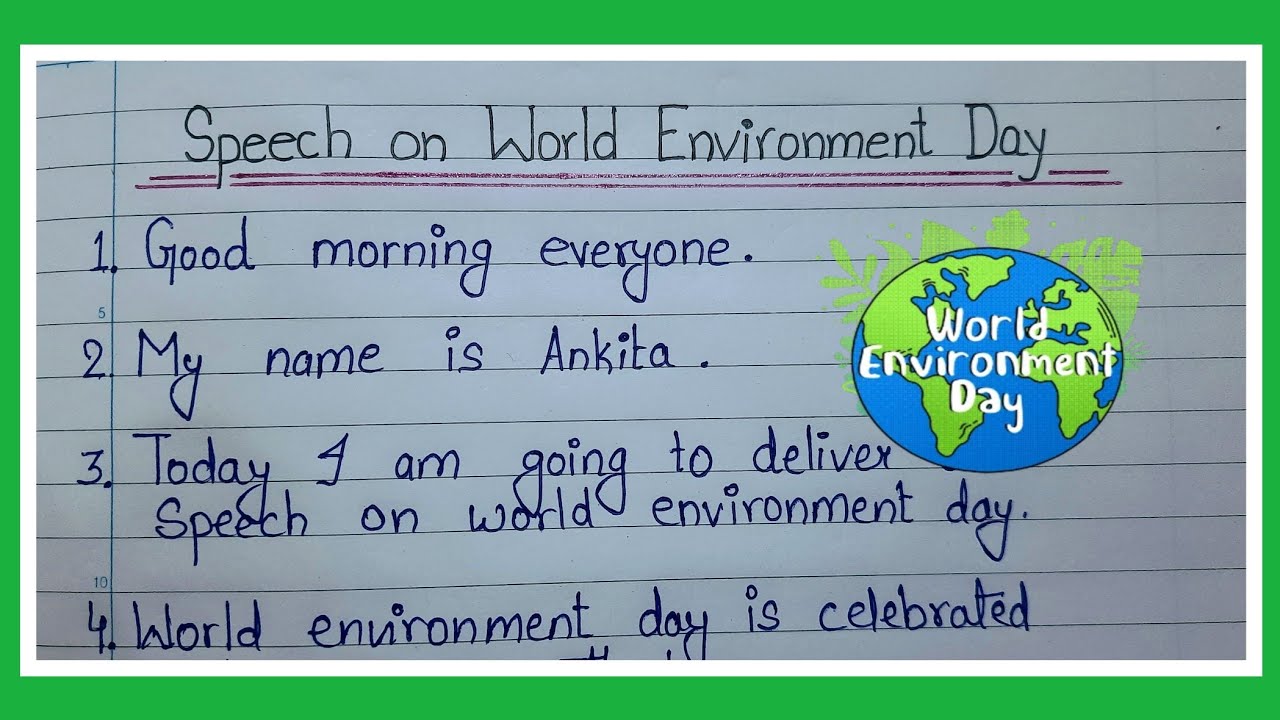 Speech on World Environment Day
1. Good morning everyone.
5
2. My name is Ankita.
World
Environment
Day
3. Today I am going to deliver
Speech on world environment day.
10
4. World environment day is celebrated